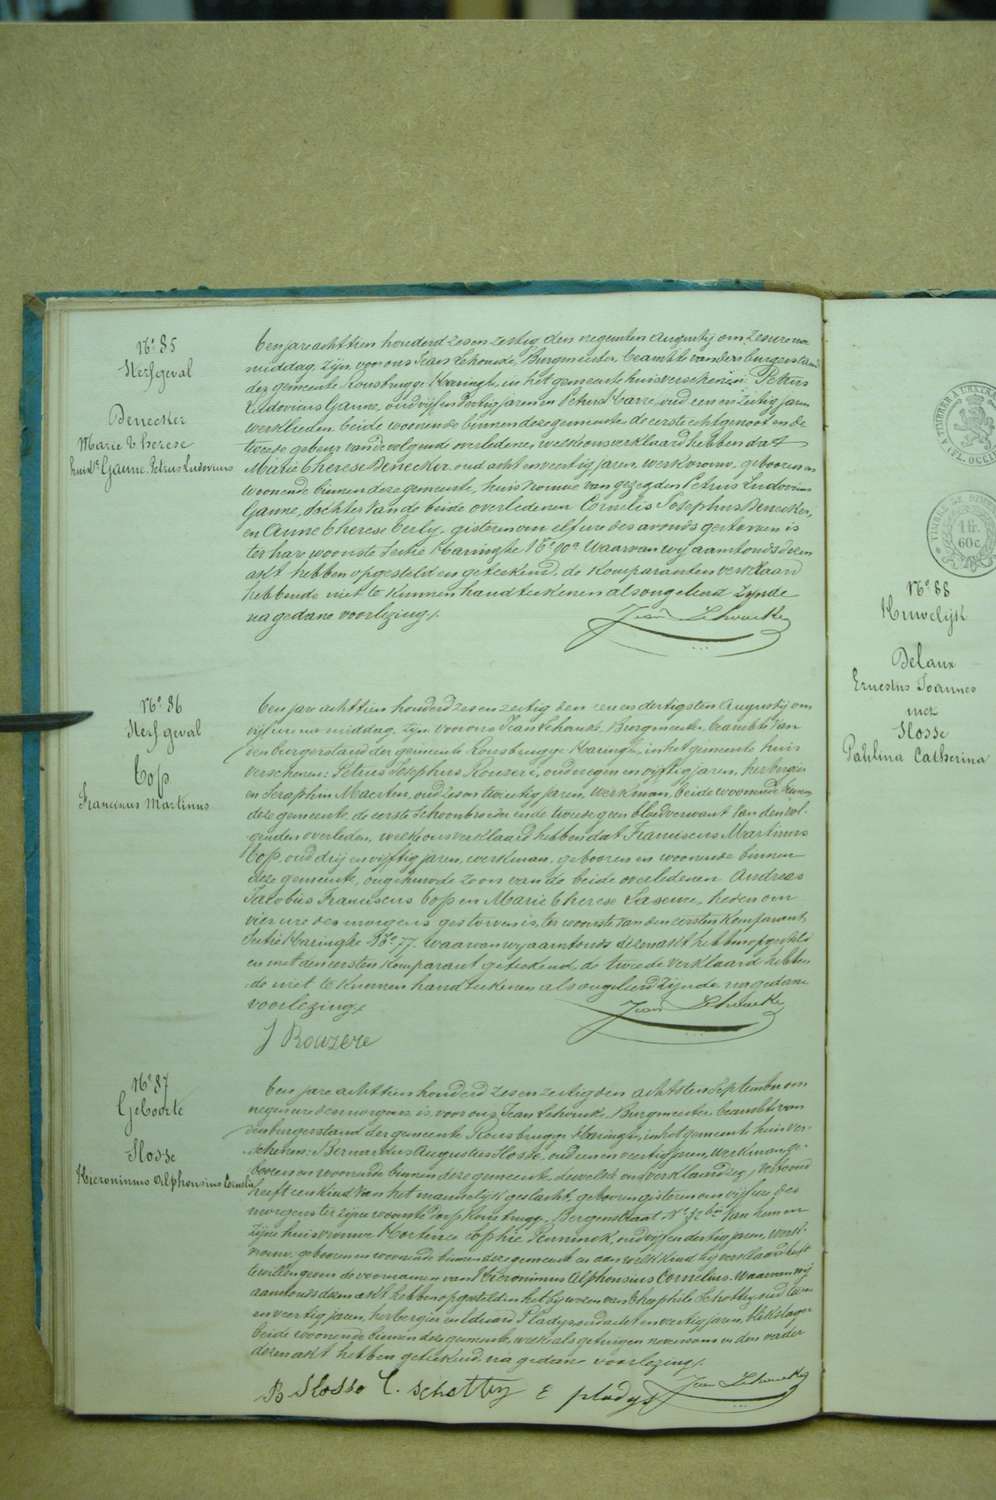 N° 85
Sterfgeval
Denecker
Marie Therese
huisv. Ganne Petrus Ludovicus
Een jare achttien honderd zes en zestig den negenten Augusty om zes ure na
middag, zijn voor ons Jean Lehoucke, Burgmeester, beambte van den burgerstand
der gemeente Rousbrugge Haringhe, in het gemeente huis verschenen: Petrus
Ludovicus Ganne, oud vijf en veertig jaren en Petrus Carre, oud een en zestig jaren
werklieden beide woonende binnen deze gemeente, de eerste echtgenoot en de
tweede gebuer van de volgende overledene, welk ons verklaard hebben dat
Marie Therese Denecker, oud acht en veertig jaren, werkvrouw, geboren en
woonende binnen deze gemeente, huisvrouwe van gezegden Petrus Ludovicus
Ganne, dochter van de beide overledenen Cornelis Josephus Denecker,
en Anne Therese Verly, gisteren om elf ure des avonds gestorven is
ter hare woonste Sectie Haringhe N° 90a Waarvan wy aanstonds dezen
akt hebben opgesteld en geteekend, de komparanten verklaard
hebbende niet te kunnen handteekenen als ongeleerd zynde
na gedane voorlezing.
Jean Lehoucke
N° 86
Sterfgeval
Top
Franciscus Martinus
Een jare achttien honderd zes en zestig den een en dertigsten Augusty om
vijf ure na middag, zijn voor ons Jean Lehoucke, Burgmeester, beambte van
den burgerstand der gemeente Rousbrugge Haringhe, in het gemeente huis
verschenen: Petrus Josephus Rouzere, oud negen en vijftig jaren, herbergier
en Seraphin Maerten, oud zes en twintig jaren, werkman, beide woonende binnen
deze gemeente, de eerste Schoonbroeder en de tweede geen bloedverwant van den vol-
genden overleden, welk ons verklaard hebben dat Franciscus Martinus
Top, oud drij en vijftig jaren, werkman, geboren en woonende binnen
deze gemeente, ongehuwde zoon van de beide overledenen Andreas
Jacobus Franciscus Top en Marie Therese Laseure, heden om
vier ure des morgens gestorven is, ter woonste van den eersten komparant,
Sectie Haringhe N° 77. Waarvan wy aanstonds dezen akt hebben opgesteld
en met den eersten komparant geteekend, de tweede verklaard hebben-
de niet te kunnen handteekenen als ongeleerd zijnde na gedane
voorlezing.
Jean Lehoucke
J Rouzere
N° 87
Geboorte
Slosse
Hieronimus Alphonsius Cornelius
Een jare achttien honderd zes en zestig den achtsten September om
negen ure des morgens is voor ons Jean Lehoucke, Burgmeester, beambte van
den burgerstand der gemeente Rousbrugge Haringhe, in het gemeente huis ver-
schenen: Bernardus Augustus Slosse, oud een en veertig jaren, werkman ge-
boren en woonende binnen deze gemeente, dewelke ons verklaard
heeft een kind van het mannelijk geslacht, geboren gisteren om vijf ure des
morgens ter zijne woonste dorp Rousbrugge, Bergenstraat van hem en
zijne huisvrouwe Hortence Sophie oud vijf en dertig jaren, werk-
vrouw, geboren en woonende binnen deze gemeente en aan welk kind hij verklaard heeft
te willen geven de voornamen van Hieronimus Alphonsius Cornelius. Waarvan wij
aanstonds dezen akt hebben opgesteld in het bij wezen van Theophile Schottey oud
en veertig jaren, herbergier en Eduard Pladys oud acht en veertig jaren, blekslager
beide woonende binnen deze gemeente, welk als getuigen nevens ons en den vader
dezen akt hebben geteekend, na gedane voorlezing.
B Slosse T. Schottey E pladys Jean Lehoucke
N° 88
Huwelijk
Delaux
Ernestus Joannes
met
Slosse
Paulina Catherina
1 fr.
60 c.